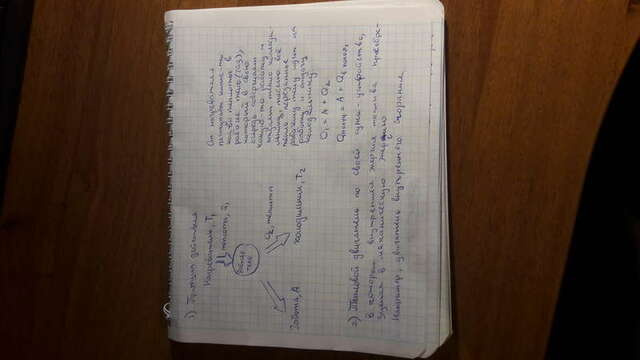 1) Принцип действия
Нагреватель, T₁
теплота, Q₁
Рабочее
тело
Q₂, теплота
Работа, A
холодильник, T₂
От нагревателя
какое-то
кол-во теплоты в
рабочее тело (газ),
который в свою
очередь совершает
какую-то работу и
тепло
тепло переданное
рабочему телу идёт на
работу и отдачу
холодильнику
Q₁ = A + Q₂
= A + Q
2) Тепловой двигатель по своей сути - устройство,
в котором внутренняя энергия топлива преобра-
зуется в механическую энергию
Например, двигатель внутреннего сгорания